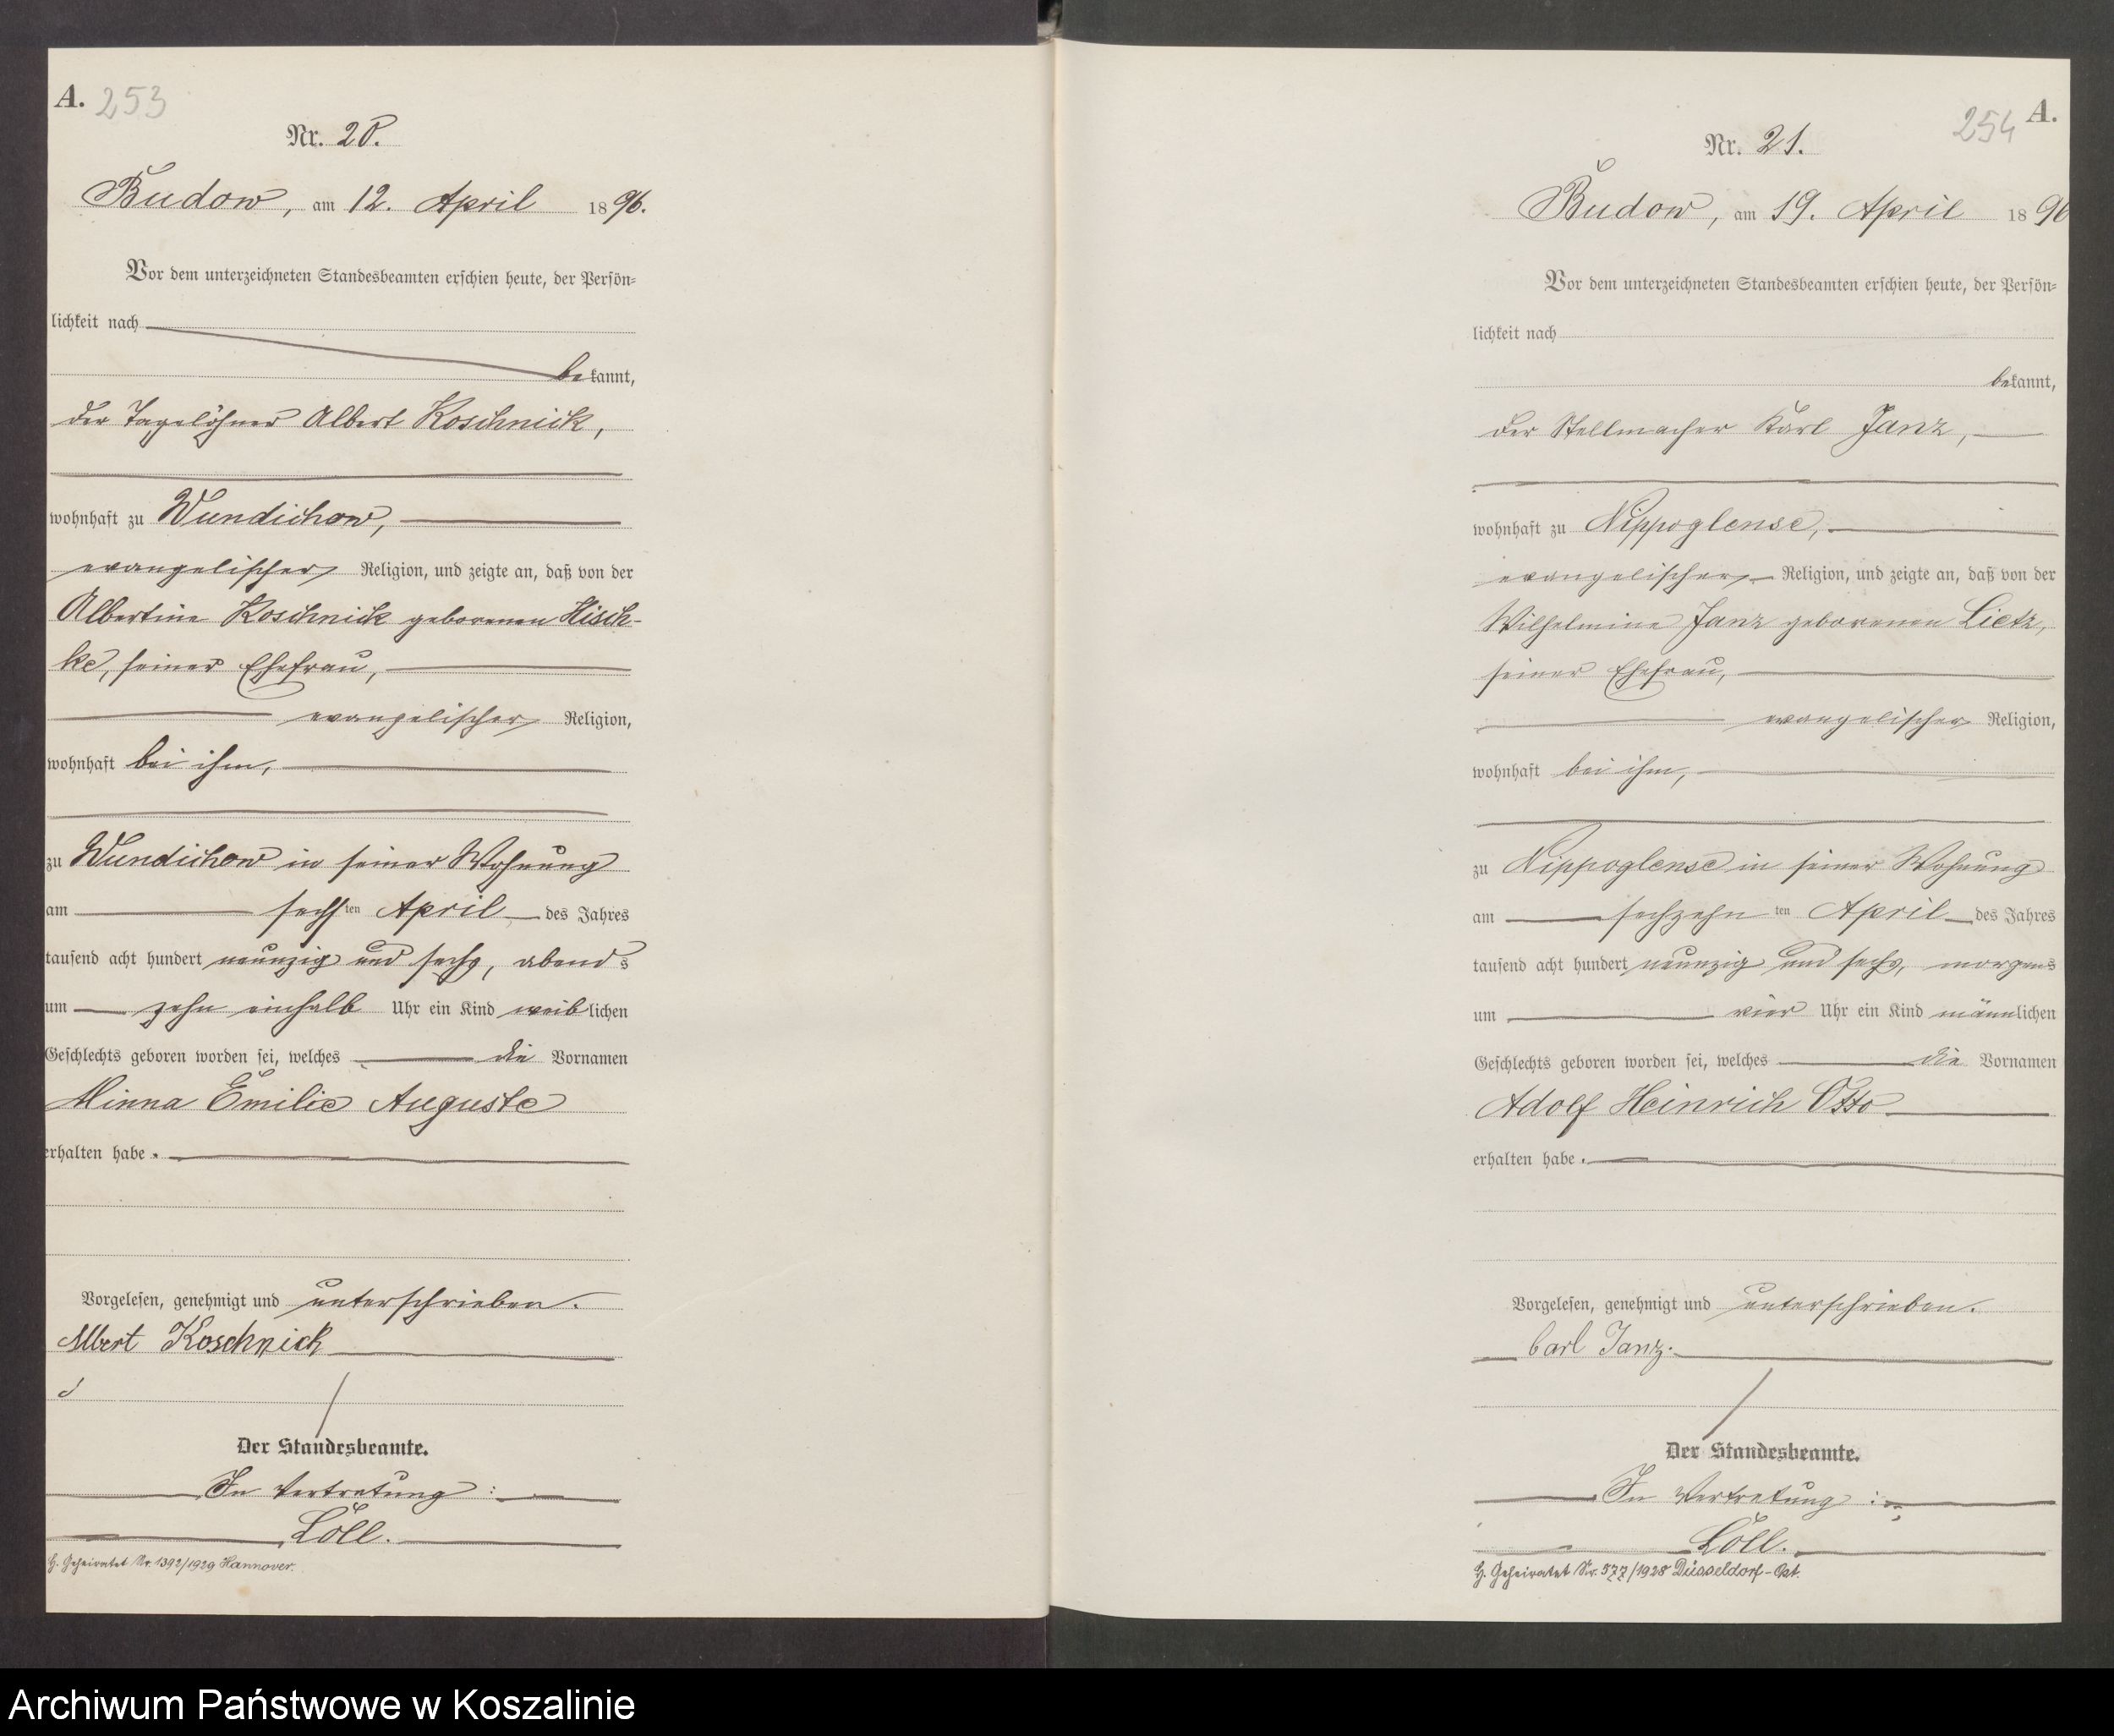 A. 253
Nr. 20.
Budow, am 12. April 1896.
Vor dem unterzeichneten Standesbeamten erschien heute, der Persön=
lichkeit nach
bekannt,
der Tagelöhner Albert Koschnick,
wohnhaft zu Wundichow,
evangelischer Religion, und zeigte an, daß von der
Albertine Koschnick geborenen Hisch-
ke, seiner Ehefrau,
evangelischer Religion,
wohnhaft bei ihm,
zu Wundichow in seiner Wohnung
am sechsten April des Jahres
tausend acht hundert neunzig und sechs, abends
um zehn einhalb Uhr ein Kind weiblichen
Geschlechts geboren worden sei, welches die Vornamen
Minna Emilie Auguste
erhalten habe.
Vorgelesen, genehmigt und unterschrieben.
Albert Koschnick
Der Standesbeamte.
In Vertretung:
Löll.
H. Geheiratet Nr. 1392/1929 Hannover.
254 A.
Nr. 21.
Budow, am 19. April 1896
Vor dem unterzeichneten Standesbeamten erschien heute, der Persön=
lichkeit nach
bekannt,
der Stellmacher Karl Janz,
wohnhaft zu Nippoglense,
evangelischer Religion, und zeigte an, daß von der
Wilhelmine Janz geborenen Lietz,
seiner Ehefrau,
evangelischer Religion,
wohnhaft bei ihm,
zu Nippoglense in seiner Wohnung
am sechzehnten April des Jahres
tausend acht hundert neunzig und sechs, morgens
um vier Uhr ein Kind männlichen
Geschlechts geboren worden sei, welches die Vornamen
Adolf Heinrich Otto
erhalten habe.
Vorgelesen, genehmigt und unterschrieben.
Carl Janz.
Der Standesbeamte.
In Vertretung:
Löll.
H. Geheiratet Nr. 577/1928 Düsseldorf-Ost.
Archiwum Państwowe w Koszalinie